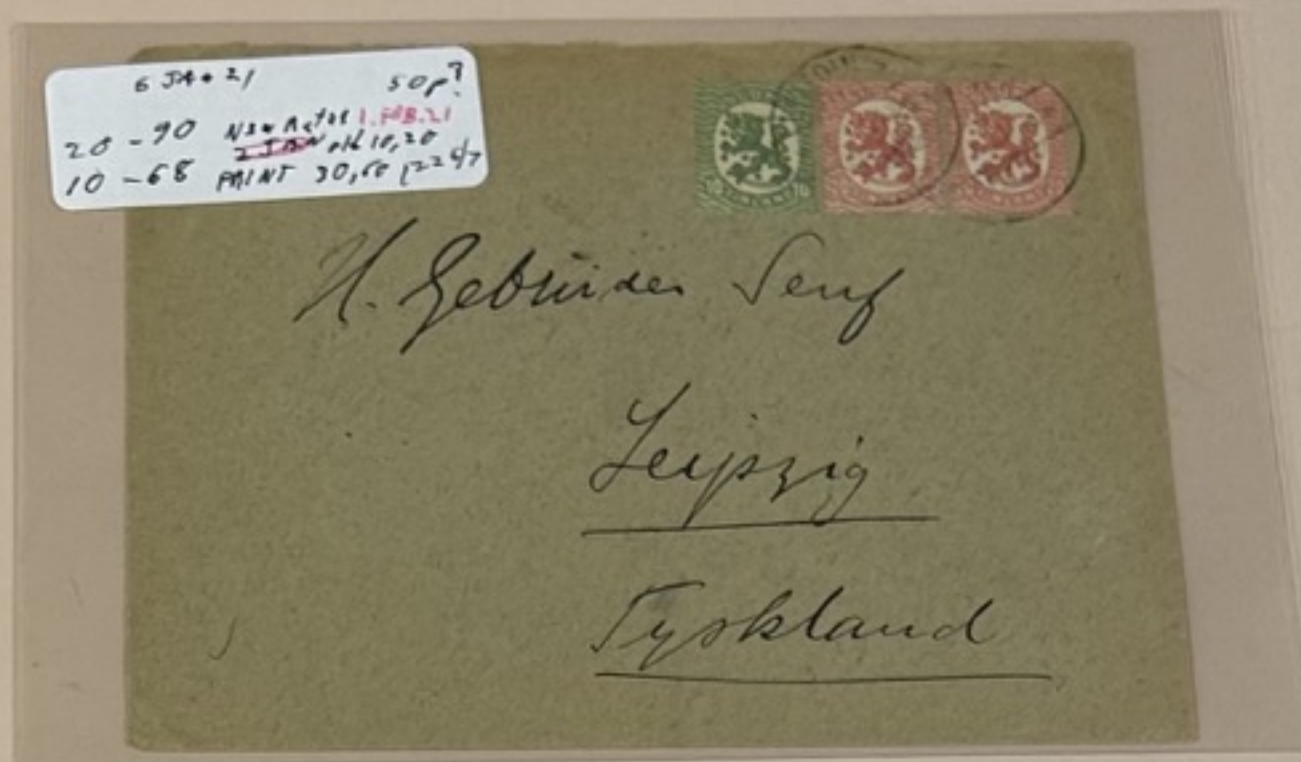 6 JAN 21 50p?
20 - 90 New Rates 1.FEB.21
2 JAN old 10,20
10 - 68 PRINT 30,60
10 10
H. Gebrüder Senf
Leipzig
Tyskland